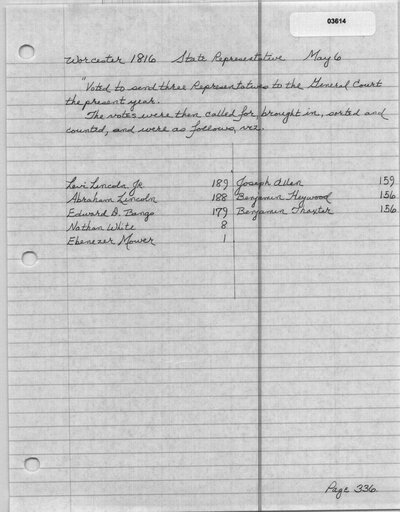 03614
Worcester 1816 State Representative May 6
"Voted to send three Representatives to the General Court
the present year.
The votes were then called for, brought in, sorted and
counted, and were as follows, viz.
Levi Lincoln Jr 189 Joseph Allen 159
Abraham Lincoln 188 Benjamin Heywood 156
Edward D. Bangs 179 Benjamin Thaxter 156
Nathan White 8
Ebenezer Mower 1
Page 336